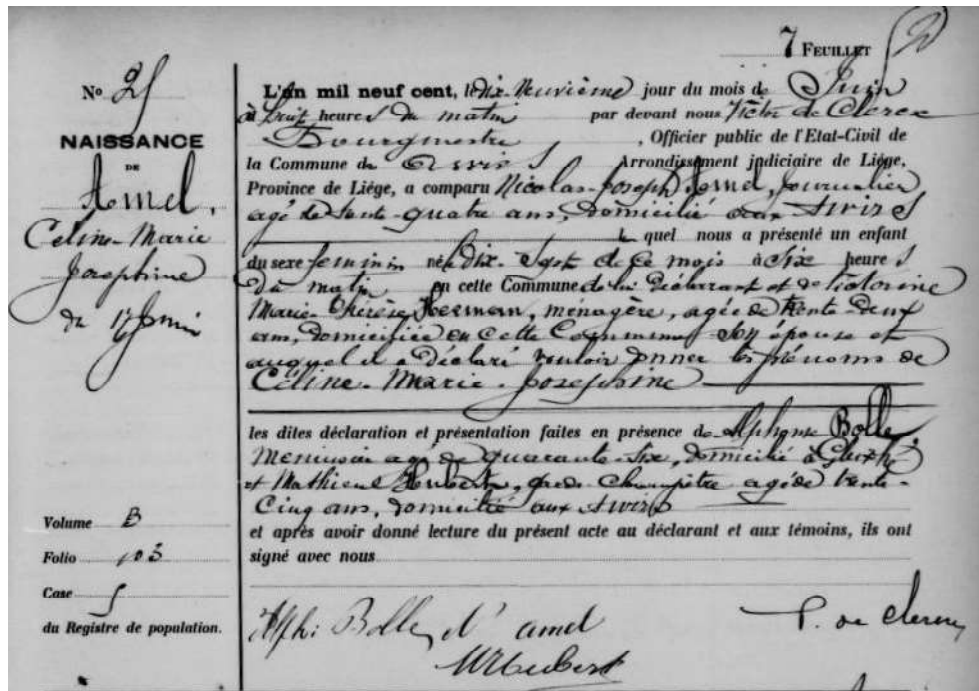 7 FEUILLET
No 25
NAISSANCE
DE
Hamel,
Céline-Marie
Joséphine
du 17 Juin
Volume B
Folio 103
Case 5
du Registre de population.
L'an mil neuf cent, le dix-neuvième jour du mois de Juin
à huit heures du matin par devant nous Victor de Clercx
Bourgmestre, Officier public de l'Etat-Civil de
la Commune de Arrondissement judiciaire de Liége,
Province de Liége, a comparu Nicolas-Joseph Hamel, journalier
agé de trente-quatre ans, domicilié aux Awirs
lequel nous a présenté un enfant
du sexe feminin né le Dix-Sept de ce mois à six heures
du matin en cette Commune de lui Déclarant et de Victorine
Marie-Thérèse Herman, ménagère, agée de trente-deux
ans, domiciliée en cette Commune son épouse et
auquel il a Déclaré vouloir donner les prénoms de
Céline-Marie-Joséphine
les dites déclaration et présentation faites en présence de Alphonse Bolle,
Menuisier agé de quarante-six, domicilié à
et Mathieu Hubert, garde-Champêtre agé de trente-
Cinq ans, domicilié aux Awirs
et après avoir donné lecture du présent acte au déclarant et aux témoins, ils ont
signé avec nous
Alph: Bolle N amel V. de Clercx
M Hubert